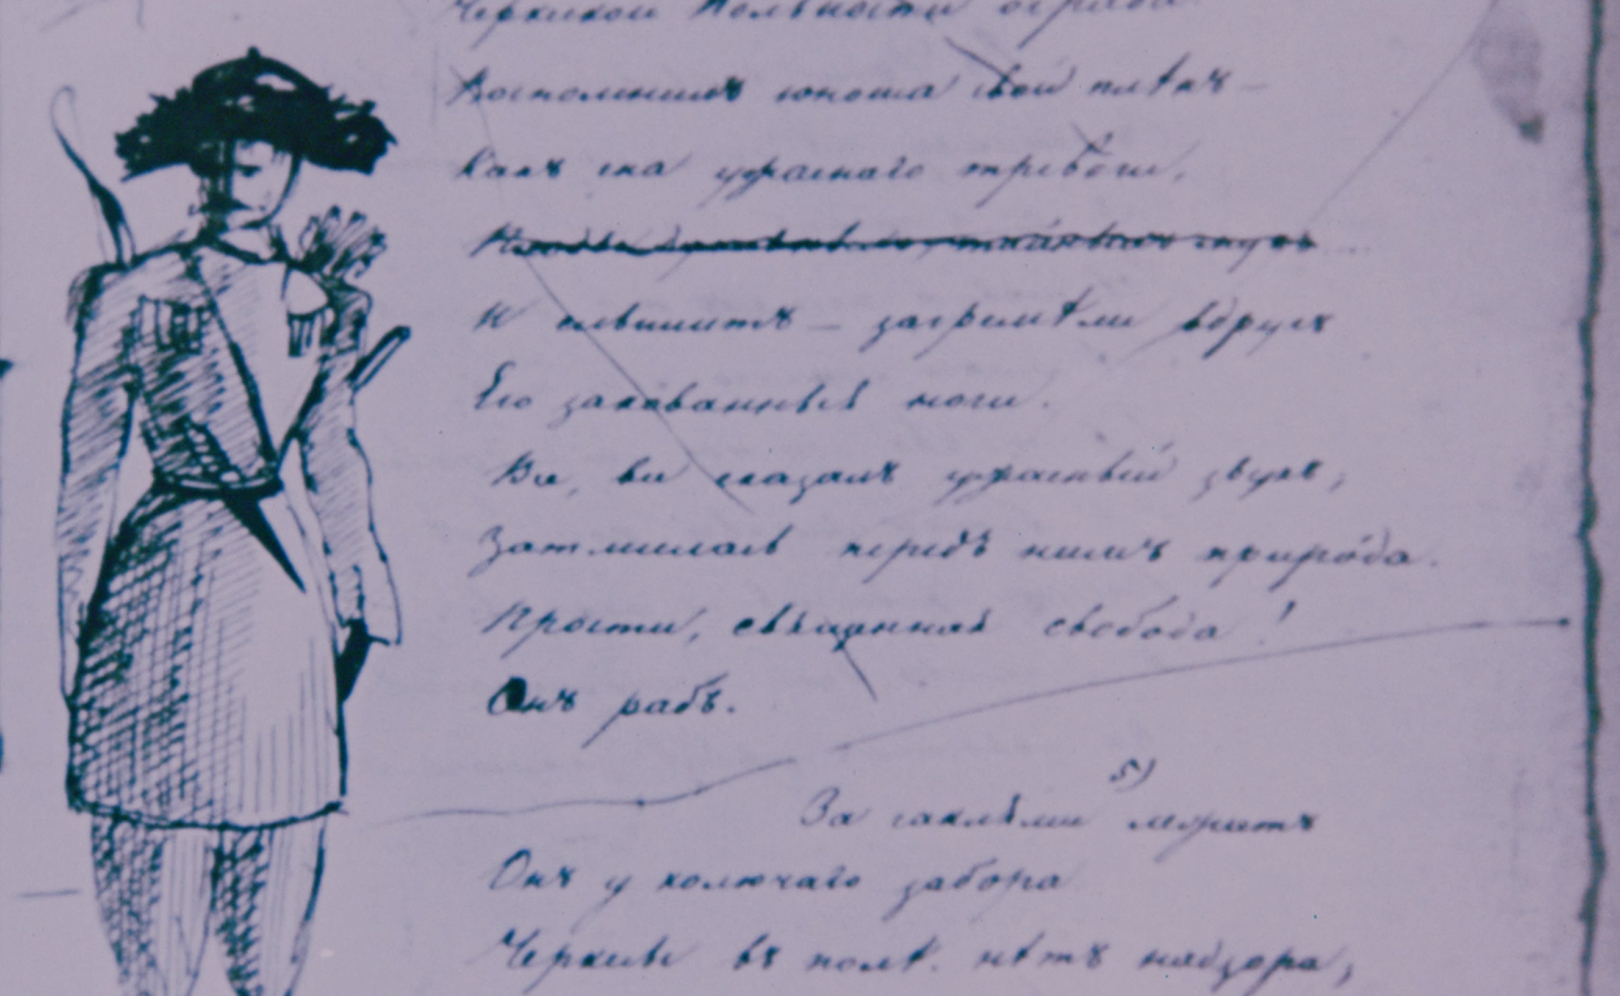 Черкесской вольности ограда.
Воспомнилъ юноша свой плѣнъ —
Какъ сна ужаснаго тревоги,
И слышитъ — загремѣли вдругъ
Его закованныя ноги.
Все, все сказалъ ужасный звукъ;
Затмилась передъ нимъ природа.
Прости, священная свобода!
Онъ рабъ.
За саклями 5) лежитъ
Онъ у колючаго забора
Черкесы въ полѣ. нѣтъ надзора,